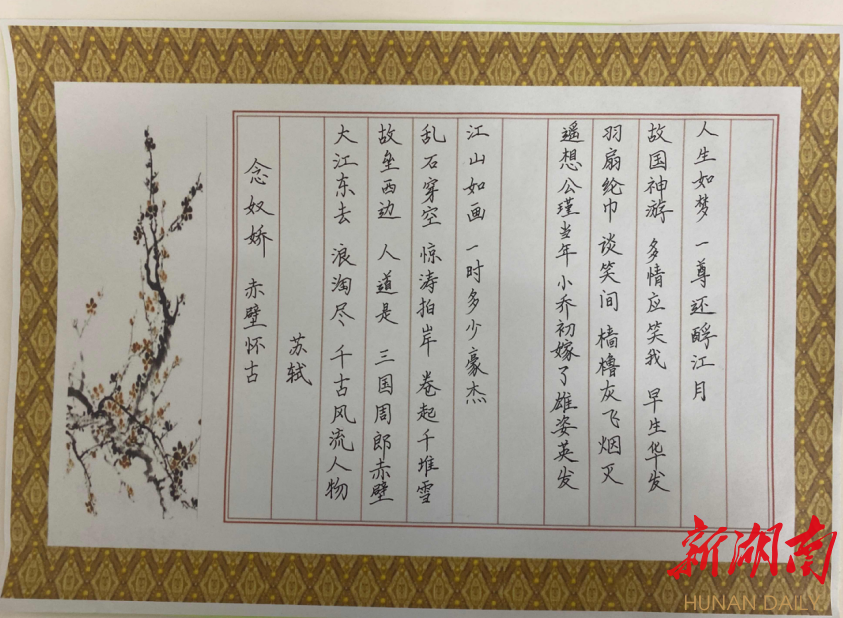 念奴娇 赤壁怀古
苏轼
大江东去 浪淘尽 千古风流人物
故垒西边 人道是 三国周郎赤壁
乱石穿空 惊涛拍岸 卷起千堆雪
江山如画 一时多少豪杰
遥想公瑾当年 小乔初嫁了雄姿英发
羽扇纶巾 谈笑间 樯橹灰飞烟灭
故国神游 多情应笑我 早生华发
人生如梦 一尊还酹江月
新湖南
HUNAN DAILY